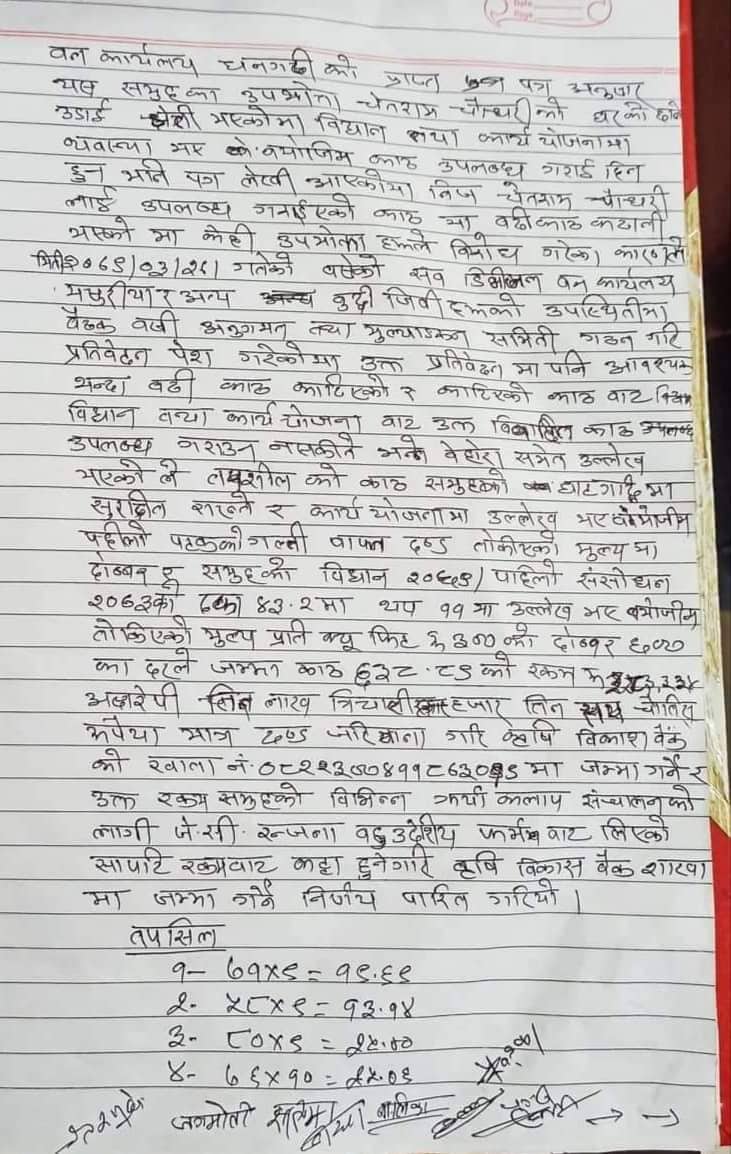 वन कार्यलय धनगढी को प्राप्त पत्र अनुसार
यस समुहका उपभोक्ता चेतराम चौधरी को घर को छाने
उडाई भएकोमा विधान तथा कार्य योजनामा
व्यवस्था भए बमोजिम काठ उपलब्ध गराई दिन
हुन भनि पत्र लेखी आएकोमा निज चेतराम चौधरी
लाई उपलब्ध गराईएको काठ मा बढी काठ कटानी
भएको मा केही उपभोक्ता हरुले विरोध गरेका कारणले
गतेको बसेको सव डिभिजन वन कार्यलय
मसुरीया र अन्य बुद्दी जिवी हरुको उपस्थितीमा
बैठक बसी अनुगमन तथा मुल्याङकन समिती गठन गरि
प्रतिवेदन पेश गरेकोमा उक्त प्रतिवेदन मा पनि आवश्यक
भन्दा बढी काठ काटिएको र काटिएको काठ बाट
विधान तथा कार्य योजना बाट उक्त काठ
उपलब्ध गराउन नसकीने भन्ने बेहोरा समेत उल्लेख
भएको ले तपशील को काठ समुहको घाटगद्दि मा
सुरक्षित राख्ने र कार्य योजनामा उल्लेख भए बमोजीम
पहीलो पटकको गल्ती वापत दण्ड तोकीएको मुल्य मा
दोब्बर हु समुहको विधान पाहिलो संसोधन
२०६३को दफा ४३.२मा थप ११ मा उल्लेख भए बमोजीम
तोकिएको मुल्य प्रति क्यू फिट रु ३०० को दोब्बर ६००
का दरले जम्मा काठ को रकम रु
अक्षरेपी तिन लाख त्रिचालीस हजार तिन सय चौतिस
रुपैया मात्र दण्ड जरिवाना गरि कृषि विकाश बैंक
को खाता नं. मा जम्मा गर्ने र
उक्त रकम समुहको विभिन्न कृया कलाप संञ्चालनको
लागी जे.सी. रन्जना वहुउदेशीय फर्मस बाट लिएको
सापटि रकमबाट कट्टा हुनेगरि कृषि विकास बैंक शाखा
मा जम्मा गर्ने निर्णय पारित गरियो ।
तपसिल
१- ७१×९ = १९.६९
२- ५८×९ = १३.१४
३- ८०×९ = २५.००
४- ७६×१० = २५.०६
जगमोती बालिका